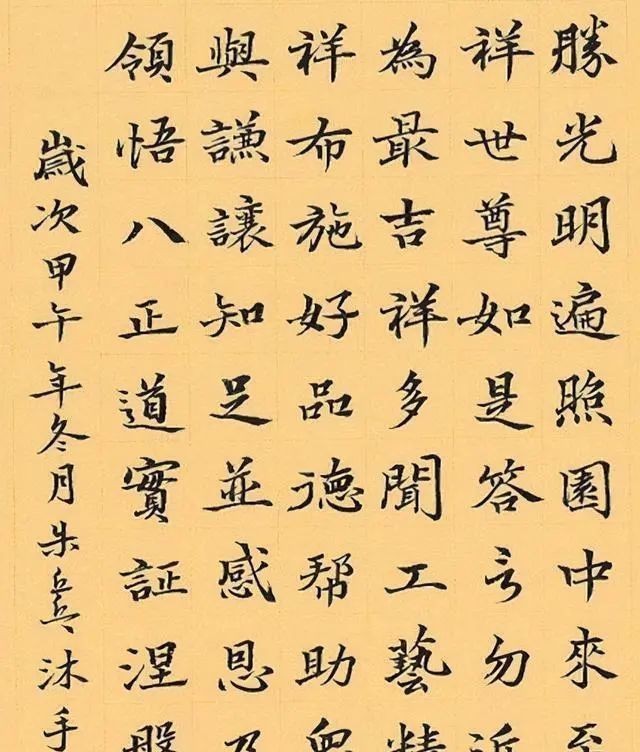 勝光明遍照園中來至
祥世尊如是答言勿近
為最吉祥多聞工藝精
祥布施好品德帮助眾
與謙讓知足並感恩
領悟八正道實証涅槃
歲次甲午年冬月朱沐手